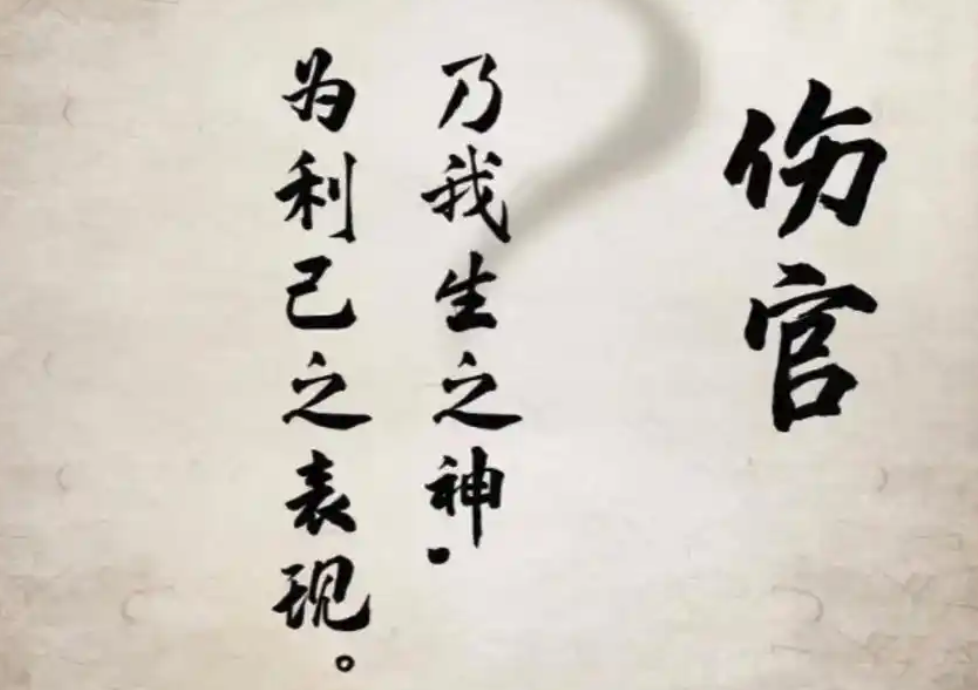 伤官
乃我生之神.
为利己之表现。